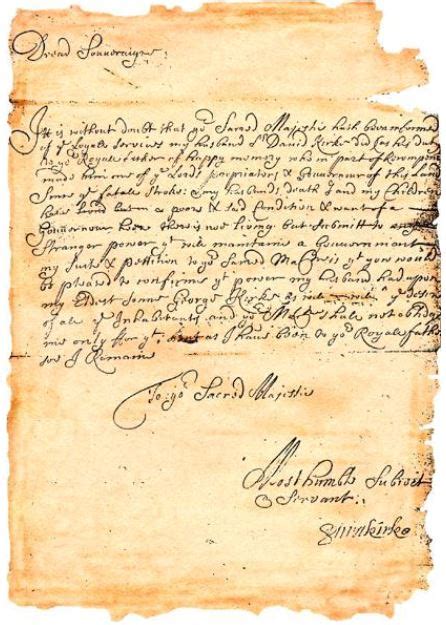 Dread Souveraigne;
It is without doubt that yor Sacred Majestie hath beene informed
of ye Loyall services my husband Sr David Kirke did (as his duty
to yor Royall father of happy memory who in part of
made him one of ye Lords propriators & Gouvernour of this Land
Since ye fatall Stroke: & my husbands death I and my Children
have lived but in a poore & sad Condition & want of a
Gouvernour here there is noe living; but Submitt to any
Stranger power yt will maintaine a Gouvernment
my Suite & Petition to yor Sacred Matie is yt you would
be pleased to confirme ye power my husband had upon
my Eldest Sonne George Kirke ye desire
of all ye Inhabitants, and yor Matie shall not obledge
me only for yt; but as I have been to yor Royall father
soe I Remaine
To yor Sacred Majestie
Most humble Subject
& Servant:
Sara kirke